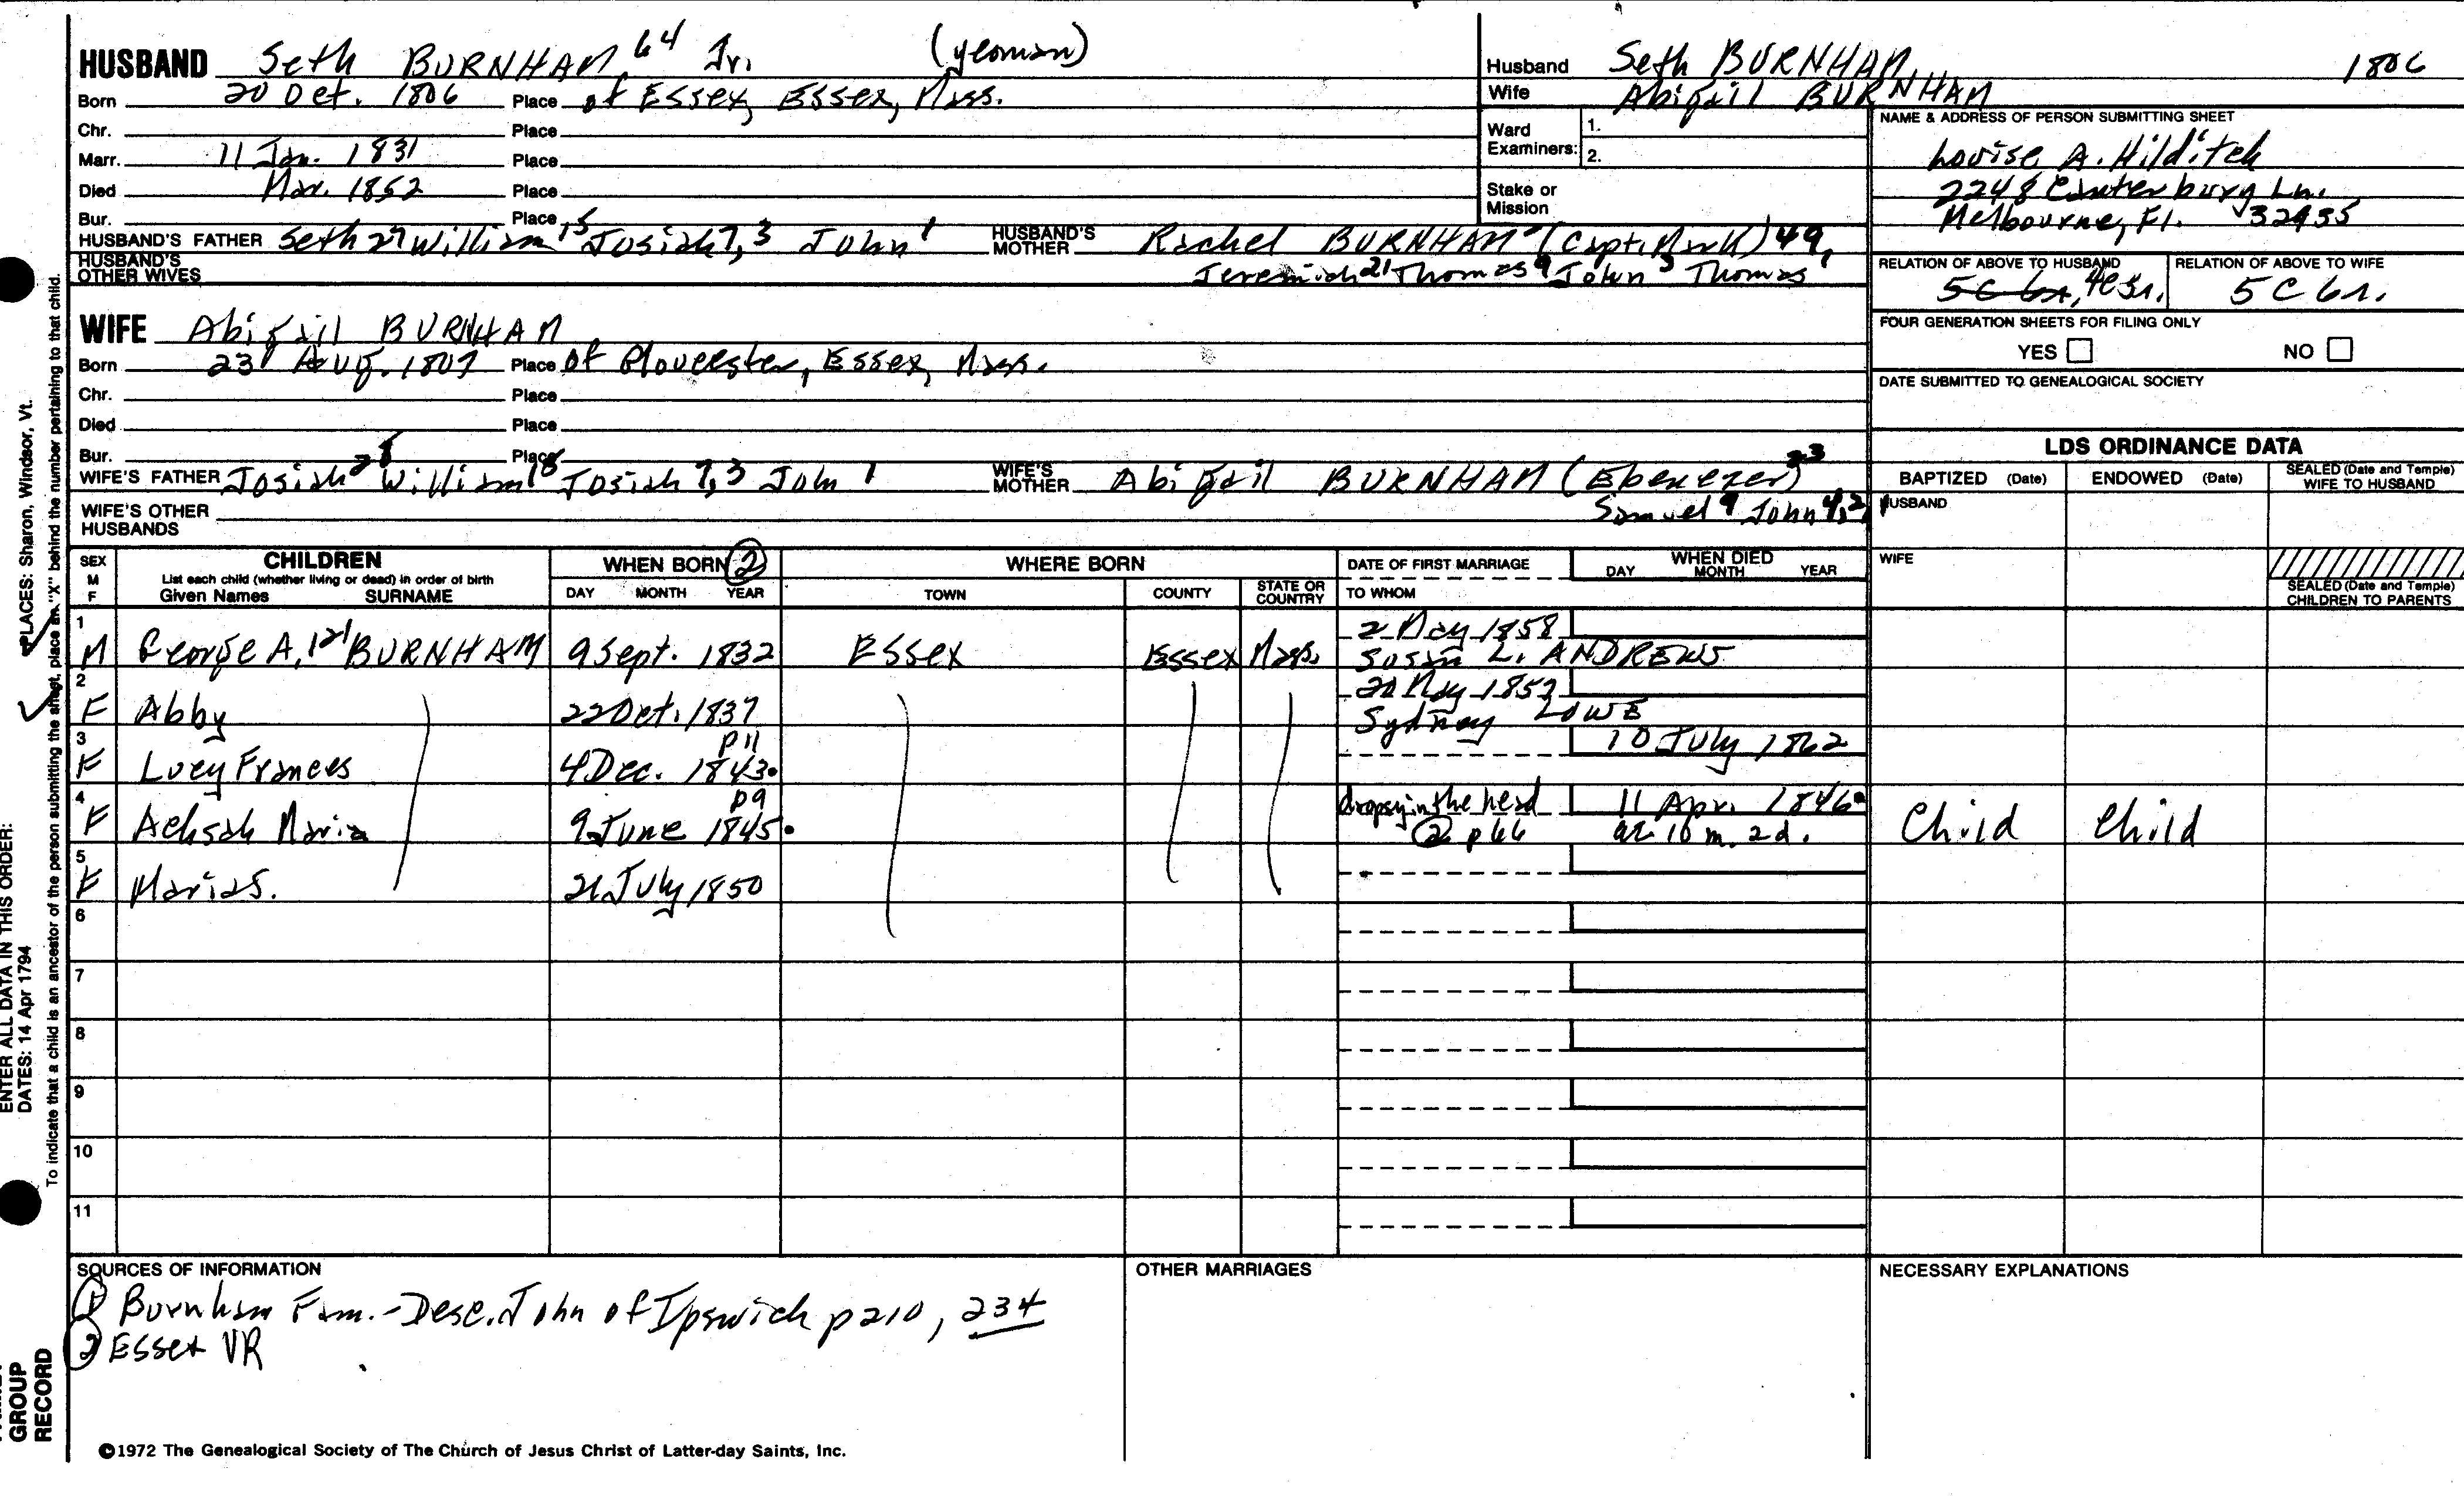 HUSBAND Seth BURNHAM 64 Jr. (yeoman)
Born 20 Oct. 1806 Place of Essex, Essex, Mass.
Chr. Place
Marr. 11 Jan. 1831 Place
Died Mar. 1852 Place
Bur. Place
HUSBAND'S FATHER Seth 27 William 15 Josiah 7,3 John 1 HUSBAND'S MOTHER Rachel BURNHAM (Capt. Mark) 49,
HUSBAND'S OTHER WIVES Jeremiah 21 Thomas 9 John 3 Thomas 1
Husband Seth BURNHAM 1806
Wife Abigail BURNHAM
Ward Examiners: 1.
2.
Stake or Mission
NAME & ADDRESS OF PERSON SUBMITTING SHEET
Louise A. Hilditch
2248 Canterbury Ln.
Melbourne, Fl. 32935
RELATION OF ABOVE TO HUSBAND RELATION OF ABOVE TO WIFE
5C 6r, 4C 5r. 5C 6r.
FOUR GENERATION SHEETS FOR FILING ONLY
YES NO
DATE SUBMITTED TO GENEALOGICAL SOCIETY
WIFE Abigail BURNHAM
Born 23 Aug. 1807 Place of Gloucester, Essex, Mass.
Chr. Place
Died Place
Bur. Place
WIFE'S FATHER Josiah 28 William 15 Josiah 7,3 John 1 WIFE'S MOTHER Abigail BURNHAM (Ebenezer) 23
WIFE'S OTHER HUSBANDS Samuel 9 John 4,2,1
LDS ORDINANCE DATA
BAPTIZED (Date) ENDOWED (Date) SEALED (Date and Temple) WIFE TO HUSBAND
HUSBAND
WIFE
SEALED (Date and Temple) CHILDREN TO PARENTS
SEX M F CHILDREN WHEN BORN 2 WHERE BORN DATE OF FIRST MARRIAGE WHEN DIED
List each child (whether living or dead) in order of birth
Given Names SURNAME DAY MONTH YEAR TOWN COUNTY STATE OR COUNTRY TO WHOM DAY MONTH YEAR
1 2 May 1858
M George A. 121 BURNHAM 9 Sept. 1832 Essex Essex Mass. Susan L. ANDREWS
2 20 May 1852
F Abby 22 Oct. 1837 Sydney LOWE
3 p11 10 July 1862
F Lucy Frances 4 Dec. 1843.
4 p9 dropsy in the head 11 Apr. 1846.
F Achsah Maria 9 June 1845. 2 p66 ae 10 m. 2 d. Child Child
5
F Maria S. 21 July 1850
6
7
8
9
10
11
SOURCES OF INFORMATION OTHER MARRIAGES NECESSARY EXPLANATIONS
1 Burnham Fam. - Desc. John of Ipswich p 210, 234
2 Essex VR
©1972 The Genealogical Society of The Church of Jesus Christ of Latter-day Saints, Inc.
ENTER ALL DATA IN THIS ORDER:
DATES: 14 Apr 1794 PLACES: Sharon, Windsor, Vt.
To indicate that a child is an ancestor of the person submitting the sheet, place an "X" behind the number pertaining to that child.
GROUP
RECORD